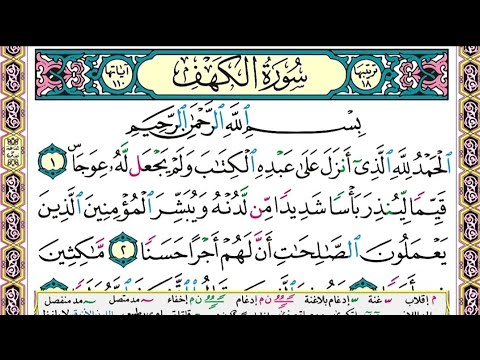 آياتها ١١٠ سُورَةُ الْكَهْفِ ترتيبها ١٨
بِسْمِ اللَّهِ الرَّحْمَٰنِ الرَّحِيمِ
الْحَمْدُ لِلَّهِ الَّذِىٓ أَنزَلَ عَلَىٰ عَبْدِهِ الْكِتَٰبَ وَلَمْ يَجْعَل لَّهُۥ عِوَجًا ۜ ١
قَيِّمًا لِّيُنذِرَ بَأْسًا شَدِيدًا مِّن لَّدُنْهُ وَيُبَشِّرَ الْمُؤْمِنِينَ الَّذِينَ
يَعْمَلُونَ الصَّٰلِحَٰتِ أَنَّ لَهُمْ أَجْرًا حَسَنًا ٢ مَّٰكِثِينَ
م إقلاب غنة إدغام بلاغنة ن م إدغام ن م إخفاء مد متصل مد منفصل